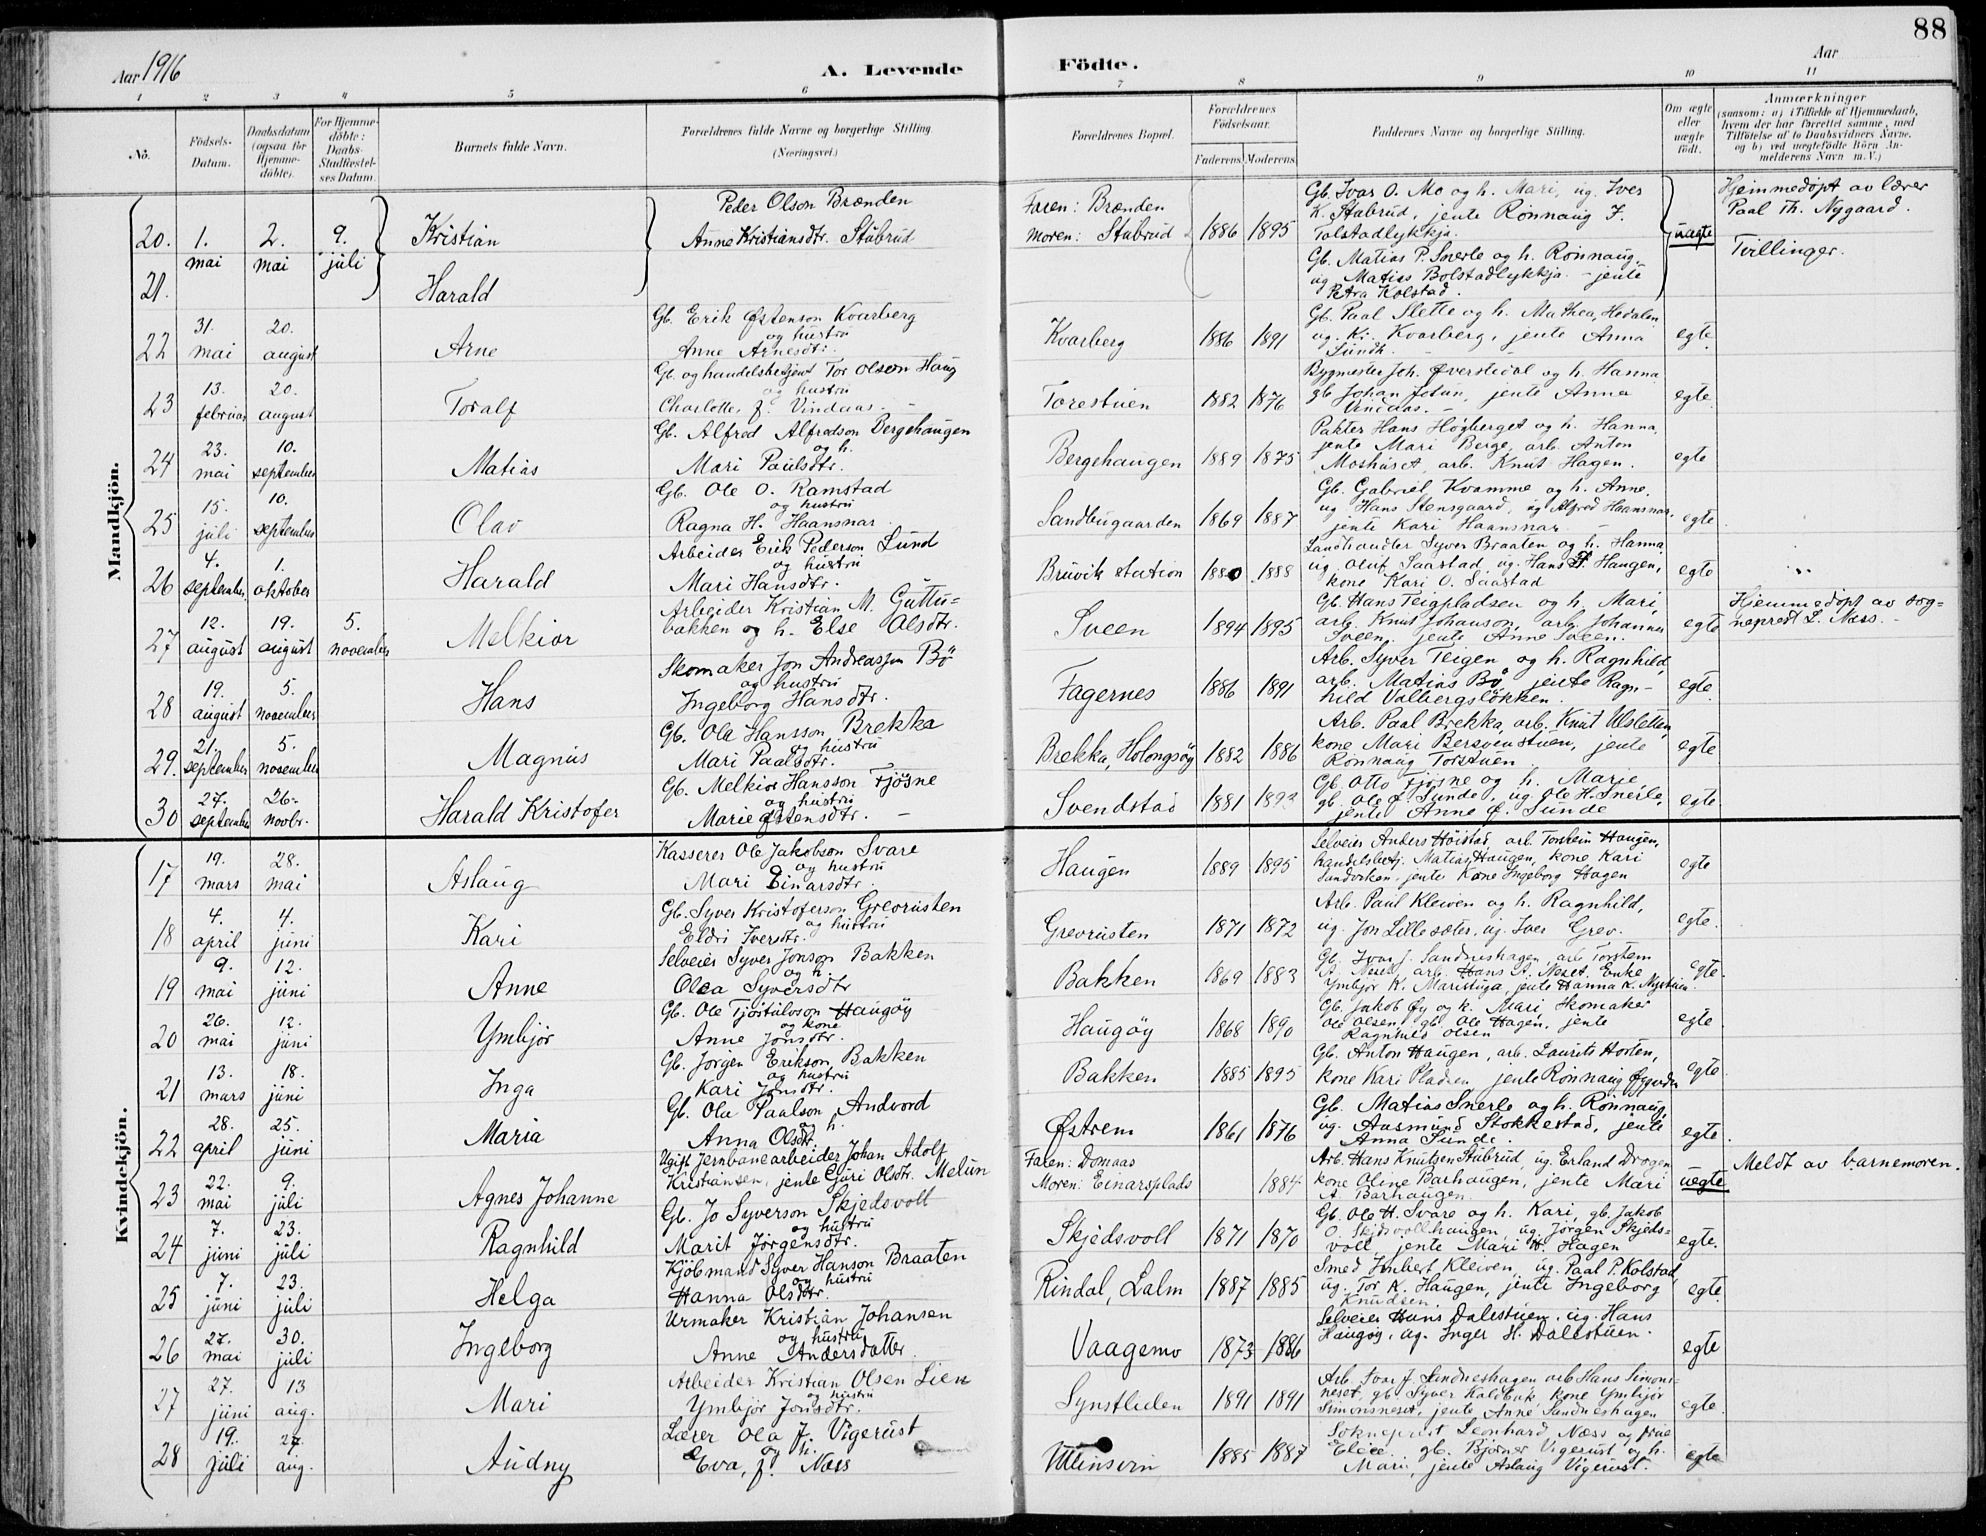 88
Aar 1916
A. Levende Födte.
Aar
1 2 3 4 5 6 7 8 9 10 11
No.
Födsels-Datum.
Daabsdatum (ogsaa for Hjemme-döbte).
For Hjemme-döbte: Daabs-Stadfæstel-ses Datum.
Barnets fulde Navn.
Forældrenes fulde Navne og borgerlige Stilling. (Næringsvei.)
Forældrenes Bopæl.
Forældrenes Födselsaar.
Faderens. Moderens.
Faddernes Navne og borgerlige Stilling.
Om ægte eller uægte födt.
Anmærkninger
(saasom: a) i Tilfælde af Hjemmedaab,
hvem der har forrettet samme, med
Tilföielse af to Daabsvidners Navne,
og b) ved uægtefödte Börn An-
melderens Navn m. V.)
Mandkjön.
20. 1. mai 2. mai 9. juli Kristian
Peder Olson Brænden
Anne Kristiansdtr. Stubrud
Faren: Brænden
Moren: Stubrud
1886 1895
Gb. Ivar O. Mo og h. Mari, ug. Iver
K. Stubrud, jente Rønnaug J.
Tolstadlykkja.
uegte
Hjemmedøpt av lærer
Paal Th. Nygaard.
21. Harald
Gb. Matias P. Snerle og h. Rønnaug,
ug Matias Bolstadlykkja - jente
Petra Kolstad.
Tvillinger.
22 31. mai 20. august Arne
Gb. Erik Østenson Kvarberg
og hustru
Anne Arnesdtr.
Kvarberg 1886 1891
Gb. Paal Slette og h. Mathea, Hedalen
ug. Kr. Kvarberg, jente Anna
Sundt.
egte.
23 13. februar 20. august Toralf
Gb. og handelsbetjent Tor Olsen Haug
og hustru
Charlotte, f. Vindaas.
Torestuen 1882 1876
Bygmester Joh. Øverstedal og h. Hanna
gb Johan Jotun, jente Anna
Vindaas.
egte.
24 23. mai 10. september Matias
Gb. Alfred Alfredson Bergehaugen
og h.
Mari Paulsdtr.
Bergehaugen 1889 1875
Pakter Hans Høgberget og h. Hanna,
jente Mari Berge, arb. Anton
Moshuset, arb. Knut Hagen.
egte
25 15. juli 10. september Olav
Gb. Ole O. Ramstad
og hustru
Ragna H. Haansnar
Sandbugaarden 1869 1887
Gb. Gabriel Kvamme og h. Anne,
ug Hans Stensgaard, ug Alfred Haansnar,
jente Kari Haansnar.
egte
26 4. september 1. oktober Harald
Arbeider Erik Pederson Lund
og hustru
Mari Hansdtr.
Bruvik station 1880 1888
Landhandler Syver Braaten og h. Hanna,
ug. Oluf Saastad, ug. Hans P. Haugen,
kone Kari O. Saastad
egte
27 12. august 19. august 5. november Melkior
Arbeider Kristian M. Guttu-
bakken og h. Else Olsdtr.
Sveen 1894 1895
Gb. Hans Teigpladsen og h. Mari,
arb. Knut Johanson, arb. Johannes
Sveen, jente Anne Sveen.
egte
Hjemmedøpt av sog-
neprest L. Næss.
28 19. august 5. november Hans
Skomaker Jon Andreassen Bø
og hustru
Ingeborg Hansdtr.
Fagernes 1886 1891
Arb. Syver Teigen og h. Ragnhild,
arb. Matias Bø, jente Ragn-
hild Valbergsløkken.
egte.
29. 21. september 5. november Magnus
Gb. Ole Hansson Brekka
og hustru
Mari Paalsdtr.
Brekka, Holongsøy 1882 1886
Arb. Paal Brekka, arb. Knut Ulsletten,
kone Mari Bersvenstuen, jente
Rønnaug Torstuen
egte
30 27. september 26. novbr. Harald Kristofer
Gb. Melkior Hansson Fjøsne
og hustru
Marie Østensdtr.
Svendstad 1881 1893
Gb. Otto Fjøsne og h. Marie,
gb. Ole Ø. Sunde, ug. Ole H. Snerle,
jente Anne Ø. Sunde
egte
Kvindekjön.
17 19. mars 28. mai Aslaug
Kasserer Ole Jakobson Svare
og hustru
Mari Einarsdtr.
Haugen 1889 1895
Selveier Anders Høistad, arb. Torstein Haugen,
handelsbetj. Matias Haugen, kone Kari
Sandviken, jente Kone Ingeborg Hagen
egte
18 4. april 4. juni Kari
Gb. Syver Kristoferson Grevrusten
og hustru
Eldri Iversdtr.
Grevrusten 1871 1872
Arb. Paul Kleiven og h. Ragnhild,
ug. Jon Lillesæter, ug. Iver Grev.
egte.
19 9. mai 12. juni Anne
Selveier Syver Jonson Bakken
og h.
Olea Syversdtr
Bakken 1869 1883
Gb. Ivar J. Sandneshagen, arb Torstein
A. Neset, arb. Hans A. Neset, Enke
Ymbjør K. Maristuga, jente Hanna K. Nystuen.
egte.
20 26. mai 12. juni Ymbjør
Gb. Ole Tjøstulvson Haugøy
og kone
Anne Jonsdtr.
Haugøy 1868 1890
Gb. Jakob Øy og k. Mari, Skomaker
Ole Olsen, gb. Ole Hagen, jente
Ragnhild Olsen
egte
21 13. mars 18. juni Inga
Gb. Jørgen Erikson Bakken
og hustru
Kari Jonsdtr.
Bakken 1885 1895
Gb. Anton Haugen, arb. Laurits Horten,
kone Kari Pladsen jente Rønnaug Øygarden
egte
22 28. april 25. juni Maria
Gb. Ole Paalson Andvord
og h.
Anna Olsdtr.
Østrem 1861 1876
Gb. Matias Snerle og h. Rønnaug,
ug. Aasmund Stokkestad, jente
Anna Sunde.
egte.
23 22. mai 9. juli Agnes Johanne
Ugift Jernbanearbeider Johan Adolf
Kristiansen, jente Guri Olsdtr. Melum
Faren: Domaas
Moren: Einarsplads 1884
Arb. Hans Knutsen Stubrud, ug. Erland Drogen
kone Oline Barhaugen, jente Mari
A. Barhaugen.
uegte
Meldt av barnemoren.
24 7. juni 23. juli Ragnhild
Gb. Jo Syverson Skjedsvoll
og hustru
Marit Jørgensdtr.
Skjedsvoll 1871 1870
Gb. Ole H. Svare og h. Kari, gb. Jakob
O. Skjedsvollhaugen, ug. Jørgen Skjeds-
voll jente Mari H. Hagen
egte.
25 7. juni 23. juli Helga
Kjøbmand Syver Hanson Braaten
og hustru
Hanna Olsdtr.
Rindal, Lalm 1887 1885
Smed Imbert Kleiven, ug. Paal P. Kolstad
ug. Tor K. Haugen, jente Ingeborg
Knudsen.
egte.
26 27. mai 30. juli Ingeborg
Urmaker Kristian Johansen
og hustru
Anne Andersdatter
Vaagemo 1873 1886
Selveier Hans Dalestuen, ug. Hans
Haugøy, ug. Inger H. Dalestuen.
egte
27 27. juni 13 aug. Mari
Arbeider Kristian Olsen Lien
og hustru
Ymbjør Jonsdtr.
Synstlien 1891 1891
Arb. Ivar J. Sandneshagen arb Hans Simons-
neset, gb Syver Kaldbak, kone Ymbjør
Simonsneset, jente Anne Sandneshagen
egte.
28 19. juli 27. aug. Audny
Lærer Ola J. Vigerust
og h.
Eva, f. Næss
Ulinsvin 1885 1887
Sokneprest Leonhard Næss og frue
Elise. gb. Bjørner Vigerust og h.
Mari, jente Aslaug Vigerust.
egte